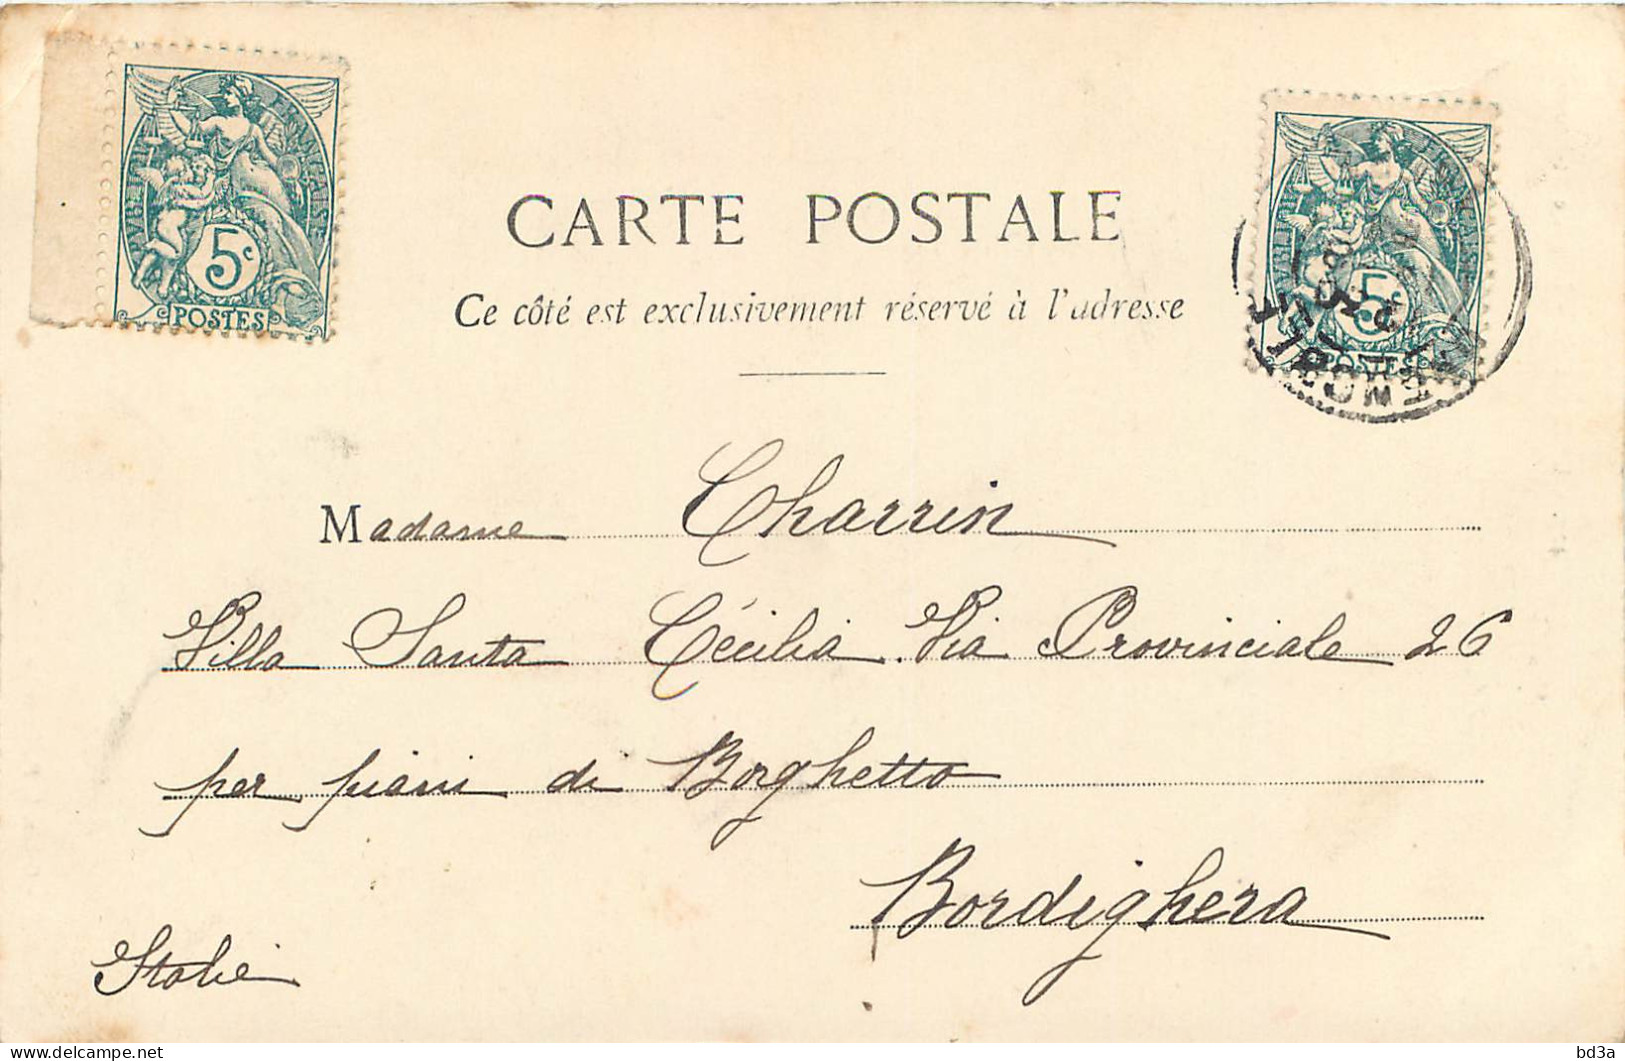 RÉPUBLIQUE FRANÇAISE
5c
POSTES
RÉPUBLIQUE FRANÇAISE
5c
POSTES
CARTE POSTALE
Ce côté est exclusivement réservé à l'adresse
Madame Charrin
Villa Santa Cécilia. Via Provinciale 26
per piani di Borghetto
Bordighera
Italie
bd3a